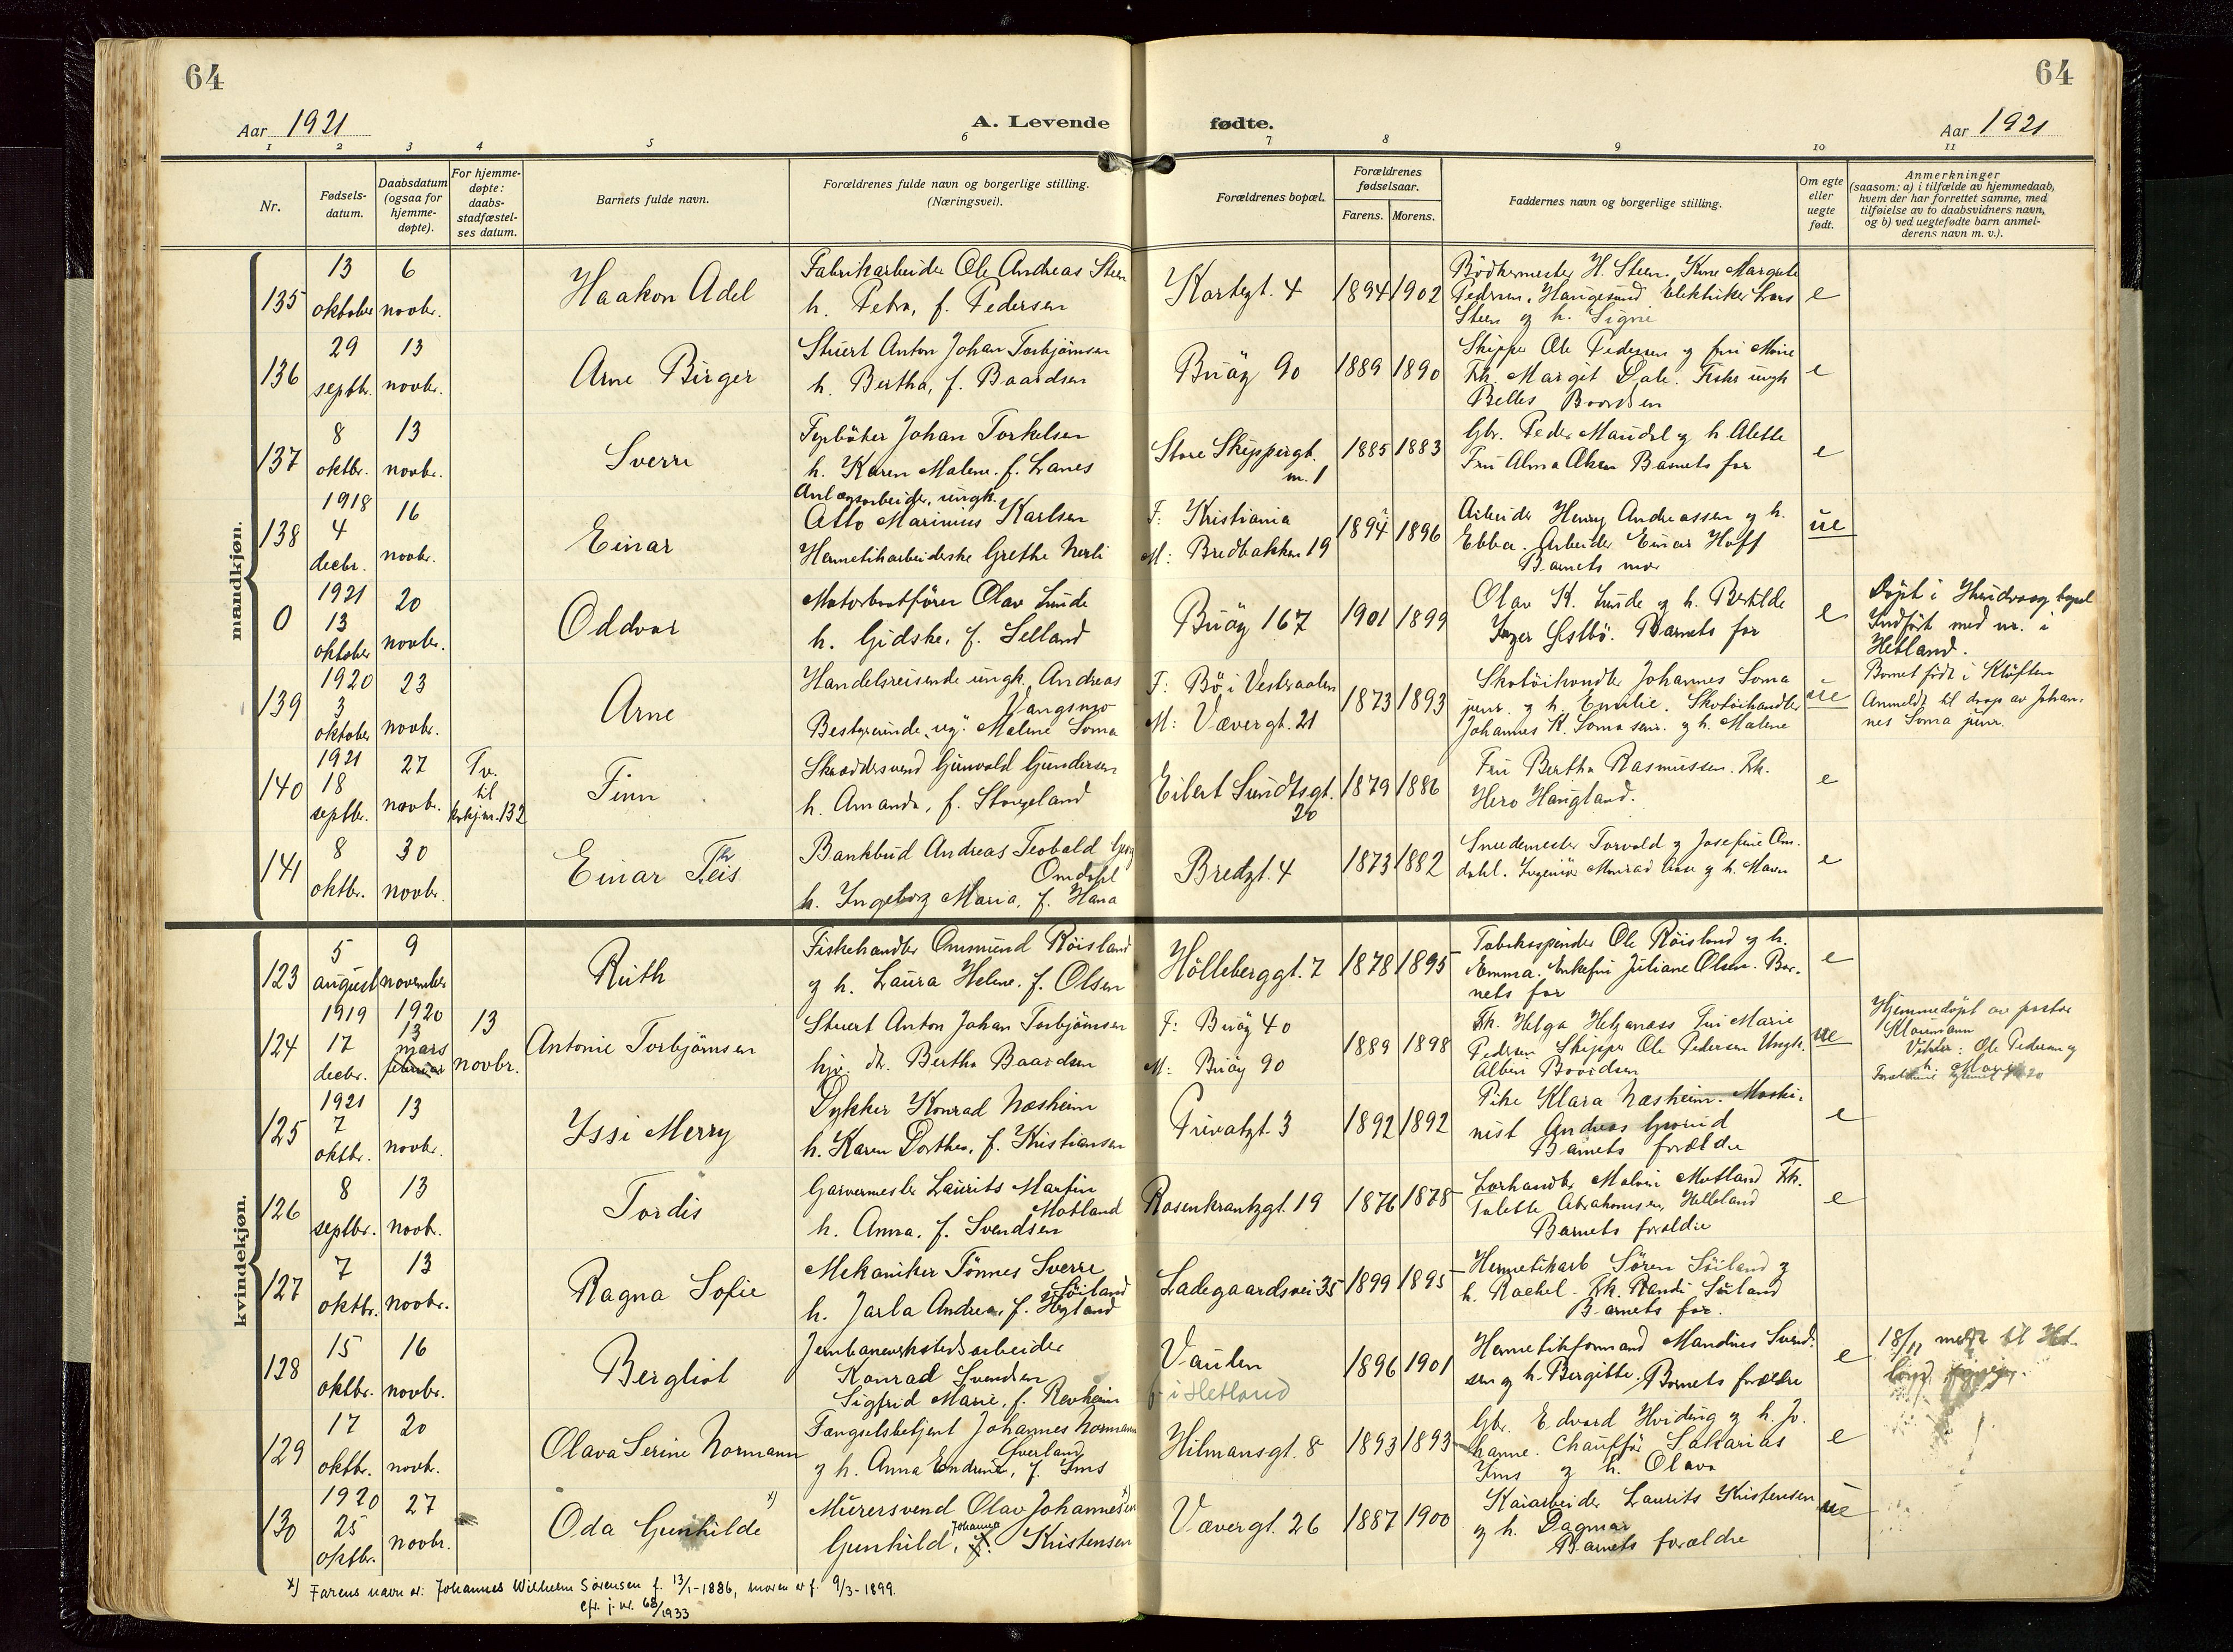 64
64
Aar 1921
A. Levende
fødte.
Aar 1921
1 2 3 4 5 6 7 8 9 10 11
Nr.
Fødsels-
datum.
Daabsdatum
(ogsaa for
hjemme-
døpte).
For hjemme-
døpte:
daabs-
stadfæstel-
ses datum.
Barnets fulde navn.
Forældrenes fulde navn og borgerlige stilling.
(Næringsvei).
Forældrenes bopæl.
Forældrenes
fødselsaar.
Farens. Morens.
Faddernes navn og borgerlige stilling.
Om egte
eller
uegte
født.
Anmerkninger
(saasom: a) i tilfælde av hjemmedaab,
hvem der har forrettet samme, med
tilføielse av to daabsvidners navn,
og b) ved uegtefødte barn anmel-
derens navn m. v.).
mandkjøn.
135
13
oktober
6
novbr.
Haakon Adel
Fabrikarbeider Ole Andreas Steen
h. Petra, f. Pedersen
Kortegt. 4
1894
1902
Bödkermester H. Steen. Kone Margrete
Pedersen, Haugesund. Elektriker Lars
Steen og h. Signe
e
136
29
septbr.
13
novbr.
Arne Birger
Stuert Anton Johan Torbjörnsen
h. Bertha, f. Baardsen
Buöy 90
1889
1890
Skipper Ole Pedersen og fru Marie
Frk. Margit Dale. Fisker ungk
Baardsen
e
137
8
oktbr.
13
novbr.
Sverre
Fyrböter Johan Torkelsen
h. Karen Malene. f. Lanes
Store Skippergt.
m. 1
1885
1883
Gbr. Peder Maudal og h. Alette
Fru Alma Aksen Barnets far
e
138
1918
4
decbr.
16
novbr.
Einar
Anlægsarbeider, ungk.
Otto Marinius Karlsen
Hermetikarbeiderske Grethe Nerli
F: Kristiania
M: Bredbakken 19
1894
1896
Arbeider Henry Andreassen og h.
Ebba. Arbeider Einar Hoff
Barnets mor
ue
0
1921
13
oktober
20
novbr.
Oddvar
Motorbaatförer Olav Lunde
h. Gidske, f. Selland
Buöy 167
1901
1899
Olav K. Lunde og h. Bertilde
Inger Östbö. Barnets far
e
Döpt i Hundvaag kapel
Indfört med nr. i
Hetland.
139
1920
3
oktober
23
novbr.
Arne
Handelsreisende ungk. Andreas
Vangsnes
Bestyrerinde, ug. Malene Soma
F: Bö i Vesteraalen
M: Vævergt. 21
1873
1893
Skotöihandler Johannes Soma
junr. og h. Emilie. Skotöihandler
Johannes K. Soma senr. og h. Malene
ue
Barnet födt i Klöften
Anmeldt til daap av Johan-
nes Soma junr.
140
1921
18
septbr.
27
novbr.
Tv.
til
kvkj.nr. 132
Finn
Skræddersvend Gunvald Gundersen
h. Amanda, f. Stangeland
Eilert Sundtsgt.
20
1879
1886
Fru Bertha Rasmussen. Frk.
Hero Haugland.
e
141
8
oktbr.
30
novbr.
Einar Theis
Bankbud Andreas Teobald Georg
Omdahl
h. Ingeborg Maria, f. Hana
Bredgt. 4
1873
1882
Smedemester Torvald og Josefine Om-
dahl. Ingeniör Monrad Aase og h. Maren
e
kvindekjøn.
123
5
august
9
november
Ruth
Fiskehandler Ommund Röisland
og h. Laura Helene. f. Olsen
Hölleberggt. 7
1878
1895
Tobakspinder Ole Röisland og h.
Emma. Enkefru Juliane Olsen. Bar-
nets far
e
124
1919
17
decbr.
1920
13
mars
februar
13
novbr.
Antonie Torbjörnsen
Stuert Anton Johan Torbjörnsen
hjv. dt. Bertha Baardsen
F: Buöy 40
M: Buöy 90
1889
1898
Frk. Helga Helganæss Fru Marie
Pedersen Skipper Ole Pedersen Ungk.
Albert Baardsen
ue
Hjemmedöpt av pastor
Klaumann
Vidner: Ole Pedersen og
h. Marie
125
1921
7
oktbr.
13
novbr.
Yssi Merry
Dykker Konrad Næsheim
h. Karen Dorthea, f. Kristiansen
Privatgt. 3
1892
1892
Pike Klara Næsheim. Maski-
nist Andreas
Barnets forældre
e
126
8
septbr.
13
novbr.
Tordis
Garvermester Laurits Martin
Motland
h. Anna, f. Svendsen
Rosenkrantzgt. 19
1876
1878
Lærhandler Malvin Motland Frk.
Talette Abrahamsen, Helleland
Barnets forældre
e
127
7
oktbr.
13
novbr.
Ragna Sofie
Mekaniker Tönnes Sverre
Söiland
h. Jarla Andrea, f. Högland
Ladegaardsvei 35
1899
1895
Hermetikarb Sören Söiland og
h. Rachel. Frk. Randi Söiland
Barnets far.
e
128
15
oktbr.
16
novbr.
Bergliot
Jernbaneverkstedsarbeider
Konrad Svendsen
Sigfrid Marie, f. Revheim
Vaulen
i Hetland
1896
1901
Hermetikformand Mandius Svend-
sen og h. Birgitte. Barnets forældre
e
18/11 meldt til Het-
land
129
17
oktbr.
20
novbr.
Olava Serine Normann
Fængselsbetjent Johannes Normann
Gverland
og h. Anna Endrine, f. Ims
Hilmansgt. 8
1893
1893
Gbr. Edvard Hviding og h. Jo-
hanne. Chaufför Sakarias
Ims og h. Olava
e
130
1920
25
oktbr.
27
novbr.
Oda Gunhilde x)
Murersvend Olav Johannessen x)
Johanna
Gunhild, f. Kristensen
Vævergt. 26
1887
1900
Kaiarbeider Laurits Kristensen
og h. Dagmar
Barnets forældre
ue
x) Farens navn er: Johannes Wilhelm Sørensen f. 13/1-1886, moren er f. 9/3-1899.
cfr. j. nr. 68/1933